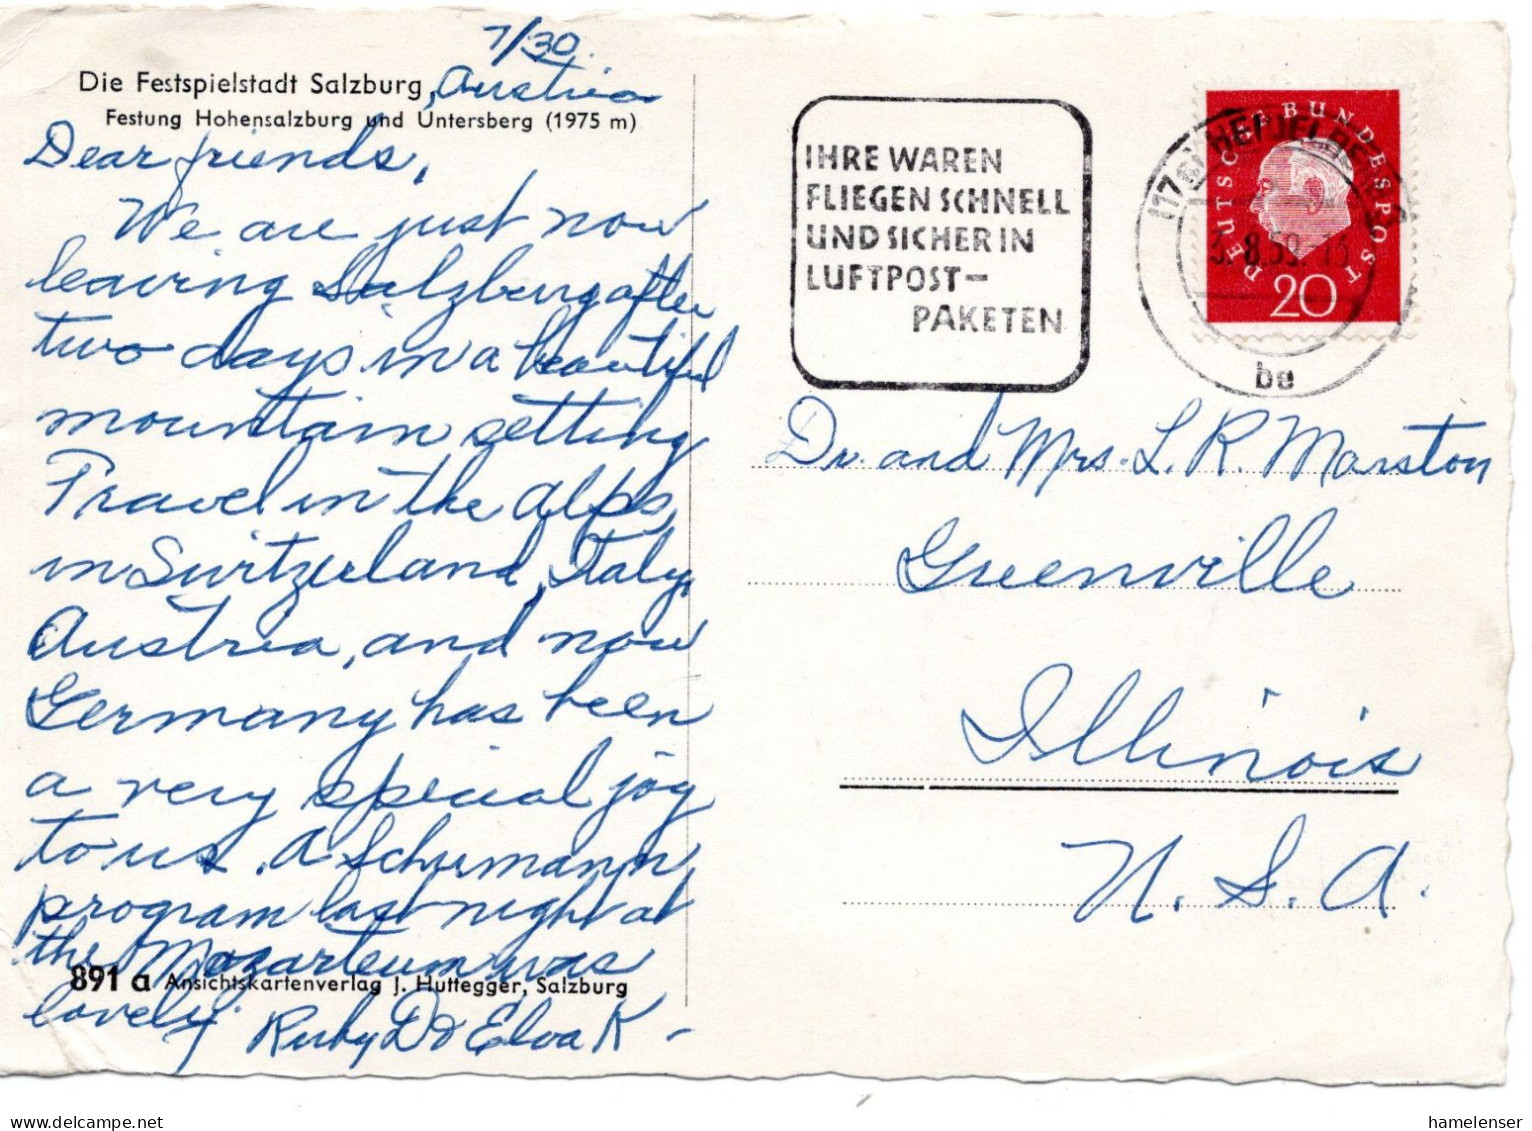 7/30.
Die Festspielstadt Salzburg, Austria
Festung Hohensalzburg und Untersberg (1975 m)
Dear friends,
We are just now
leaving Salzburg after
two days in a beautiful
mountain setting
Travel in the Alps,
in Switzerland, Italy,
Austria, and now
Germany has been
a very special joy
to us. A Schumann
program last night at
the Mozarteum was
891 a Ansichtskartenverlag J. Huttegger, Salzburg
lovely.
Ruby D & Elva K -
IHRE WAREN
FLIEGEN SCHNELL
UND SICHER IN
LUFTPOST-
PAKETEN
HEIDELBERG
3.-8.59.-13
be
DEUTSCHE BUNDESPOST
20
Dr. and Mrs. L. R. Marston
Greenville
Illinois
U. S. A.
www.delcampe.net
hamelenser